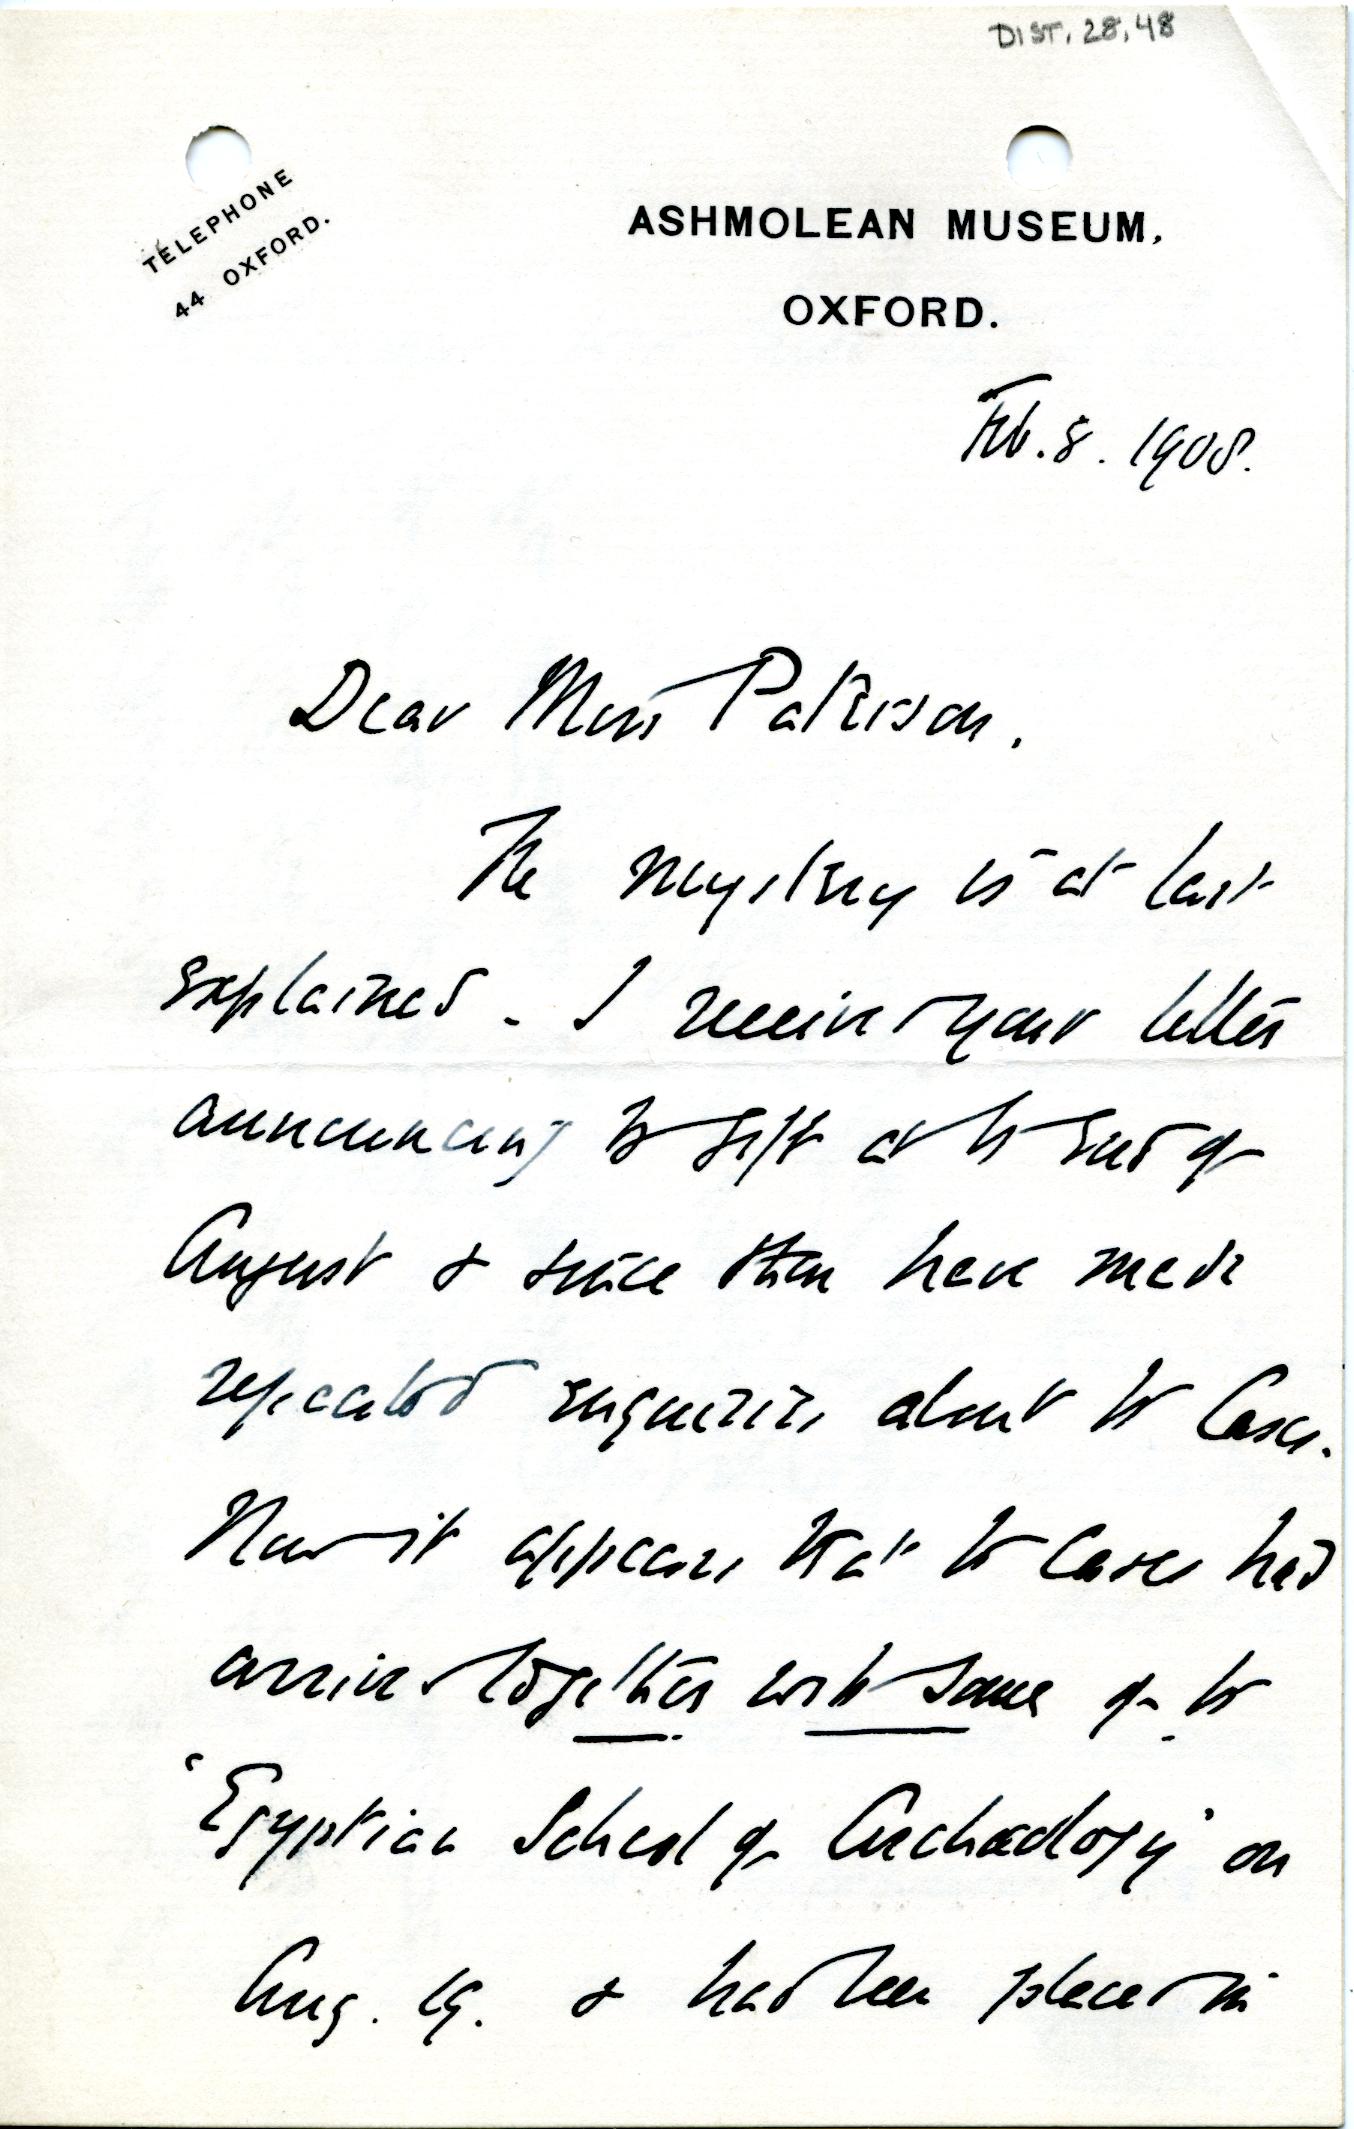 DIST. 28.48
TELEPHONE
44 OXFORD.
ASHMOLEAN MUSEUM,
OXFORD.
Feb. 8. 1908.
Dear Miss Paterson,
The mystery is at last
explained. I received your letter
announcing the gift at the end of
August & since then have made
repeated enquiries about the Cases.
Now it appears that the Cases had
arrived together with some of the
'Egyptian School of Archaeology' on
Aug. 19. & had been placed in